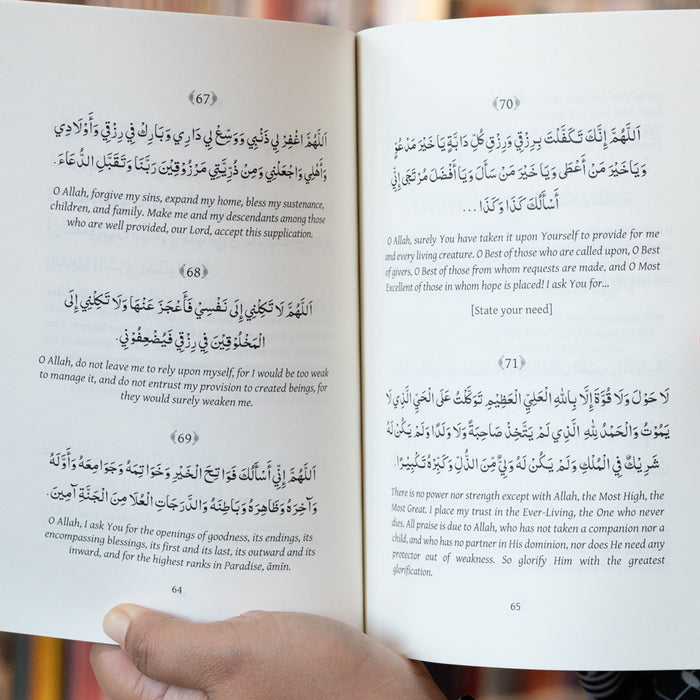 (67)
اَللّٰهُمَّ اغْفِرْ لِي ذَنْبِي وَوَسِّعْ لِي دَارِي وَبَارِكْ فِي رِزْقِي وَأَوْلَادِي
وَأَهْلِي وَاجْعَلْنِي وَمِنْ ذُرِّيَّتِي مَرْزُوْقِيْنَ رَبَّنَا وَتَقَبَّلِ الدُّعَاءَ.
O Allah, forgive my sins, expand my home, bless my sustenance,
children, and family. Make me and my descendants among those
who are well provided, our Lord, accept this supplication.
(68)
اَللّٰهُمَّ لَا تَكِلْنِي إِلَى نَفْسِيْ فَأَعْجَزَ عَنْهَا وَلَا تَكِلْنِي إِلَى
الْمَخْلُوْقِيْنَ فِي رِزْقِي فَيُضْعِفُوْنِي.
O Allah, do not leave me to rely upon myself, for I would be too weak
to manage it, and do not entrust my provision to created beings, for
they would surely weaken me.
(69)
اَللّٰهُمَّ إِنِّي أَسْأَلُكَ فَوَاتِحَ الْخَيْرِ وَخَوَاتِمَهُ وَجَوَامِعَهُ وَأَوَّلَهُ
وَآخِرَهُ وَظَاهِرَهُ وَبَاطِنَهُ وَالدَّرَجَاتِ الْعُلَا مِنَ الْجَنَّةِ آمِينَ.
O Allah, I ask You for the openings of goodness, its endings, its
encompassing blessings, its first and its last, its outward and its
inward, and for the highest ranks in Paradise, āmīn.
64
(70)
اَللّٰهُمَّ إِنَّكَ تَكَفَّلْتَ بِرِزْقِي وَرِزْقِ كُلِّ دَابَّةٍ يَا خَيْرَ مَدْعُوٍّ
وَيَا خَيْرَ مَنْ أَعْطَى وَيَا خَيْرَ مَنْ سَأَلَ وَيَا أَفْضَلَ مُرْتَجًى إِنِّي
أَسْأَلُكَ كَذَا وَكَذَا ...
O Allah, surely You have taken it upon Yourself to provide for me
and every living creature. O Best of those who are called upon, O Best
of givers, O Best of those from whom requests are made, and O Most
Excellent of those in whom hope is placed! I ask You for...
[State your need]
(71)
لَا حَوْلَ وَلَا قُوَّةَ إِلَّا بِاللهِ الْعَلِيِّ الْعَظِيْمِ تَوَكَّلْتُ عَلَى الْحَيِّ الَّذِي لَا
يَمُوْتُ وَالْحَمْدُ لِلّٰهِ الَّذِي لَمْ يَتَّخِذْ صَاحِبَةً وَلَا وَلَدًا وَلَمْ يَكُنْ لَهُ
شَرِيْكٌ فِي الْمُلْكِ وَلَمْ يَكُنْ لَهُ وَلِيٌّ مِّنَ الذُّلِّ وَكَبِّرْهُ تَكْبِيْرًا.
There is no power nor strength except with Allah, the Most High, the
Most Great. I place my trust in the Ever-Living, the One who never
dies. All praise is due to Allah, who has not taken a companion nor a
child, and who has no partner in His dominion, nor does He need any
protector out of weakness. So glorify Him with the greatest
glorification.
65